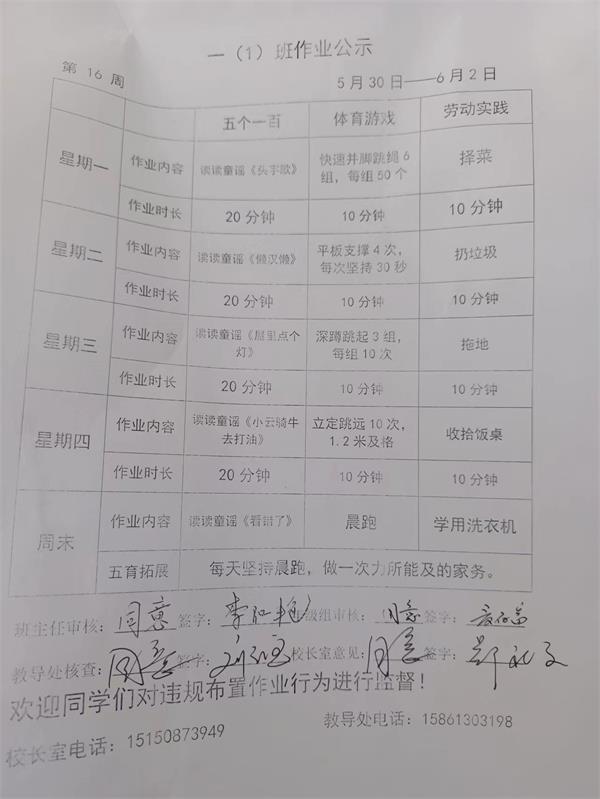 一（1）班作业公示
第 16 周 5 月 30 日——6 月 2 日
五个一百 体育游戏 劳动实践
星期一 作业内容 读读童谣《头字歌》 快速并脚跳绳 6 组，每组 50 个 择菜
作业时长 20 分钟 10 分钟 10 分钟
星期二 作业内容 读读童谣《懒汉懒》 平板支撑 4 次，每次坚持 30 秒 扔垃圾
作业时长 20 分钟 10 分钟 10 分钟
星期三 作业内容 读读童谣《屋里点个灯》 深蹲跳起 3 组，每组 10 次 拖地
作业时长 20 分钟 10 分钟 10 分钟
星期四 作业内容 读读童谣《小云骑牛去打油》 立定跳远 10 次，1.2 米及格 收拾饭桌
作业时长 20 分钟 10 分钟 10 分钟
周末 作业内容 读读童谣《看错了》 晨跑 学用洗衣机
五育拓展 每天坚持晨跑，做一次力所能及的家务。
班主任审核：同意 签字： 级组审核：同意 签字：
教导处核查：同意 签字： 校长室意见：同意 签字：
欢迎同学们对违规布置作业行为进行监督！
校长室电话：15150873949 教导处电话：15861303198